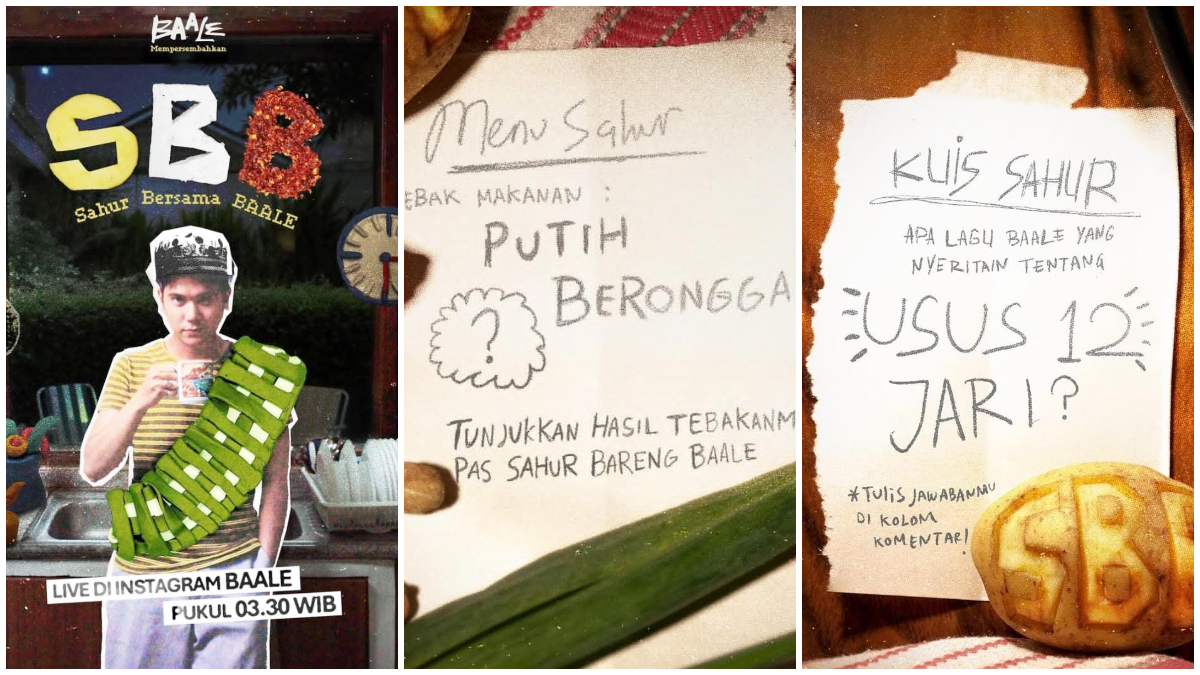 BAALE
Mempersembahkan
SBB
Sahur Bersama BAALE
LIVE DI INSTAGRAM BAALE
PUKUL 03.30 WIB
Menu Sahur
EBAK MAKANAN :
PUTIH
BERONGGA
?
TUNJUKKAN HASIL TEBAKANM
PAS SAHUR BARENG BAALE
KUIS SAHUR
APA LAGU BAALE YANG
NYERITAIN TENTANG
USUS 12
JARI?
*TULIS JAWABANMU
DI KOLOM
KOMENTAR!
SBB